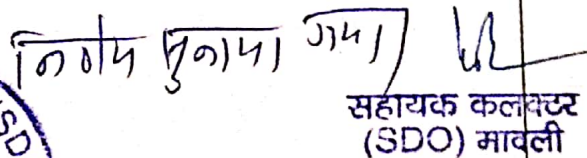 निर्णय सुनाया गया
सहायक कलक्टर
(SDO) मावली
SD